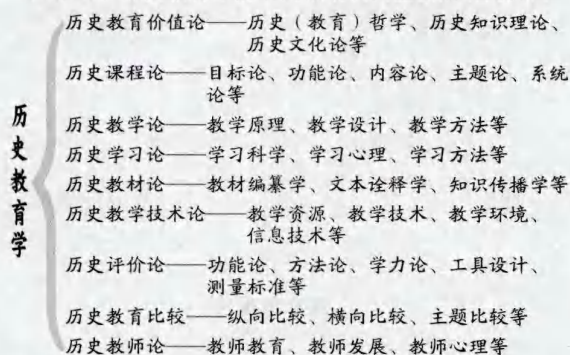 历史教育学
历史教育价值论——历史(教育)哲学、历史知识理论、
历史文化论等
历史课程论——目标论、功能论、内容论、主题论、系统
论等
历史教学论——教学原理、教学设计、教学方法等
历史学习论——学习科学、学习心理、学习方法等
历史教材论——教材编纂学、文本诠释学、知识传播学等
历史教学技术论——教学资源、教学技术、教学环境、
信息技术等
历史评价论——功能论、方法论、学力论、工具设计、
测量标准等
历史教育比较——纵向比较、横向比较、主题比较等
历史教师论——教师教育、教师发展、教师心理等